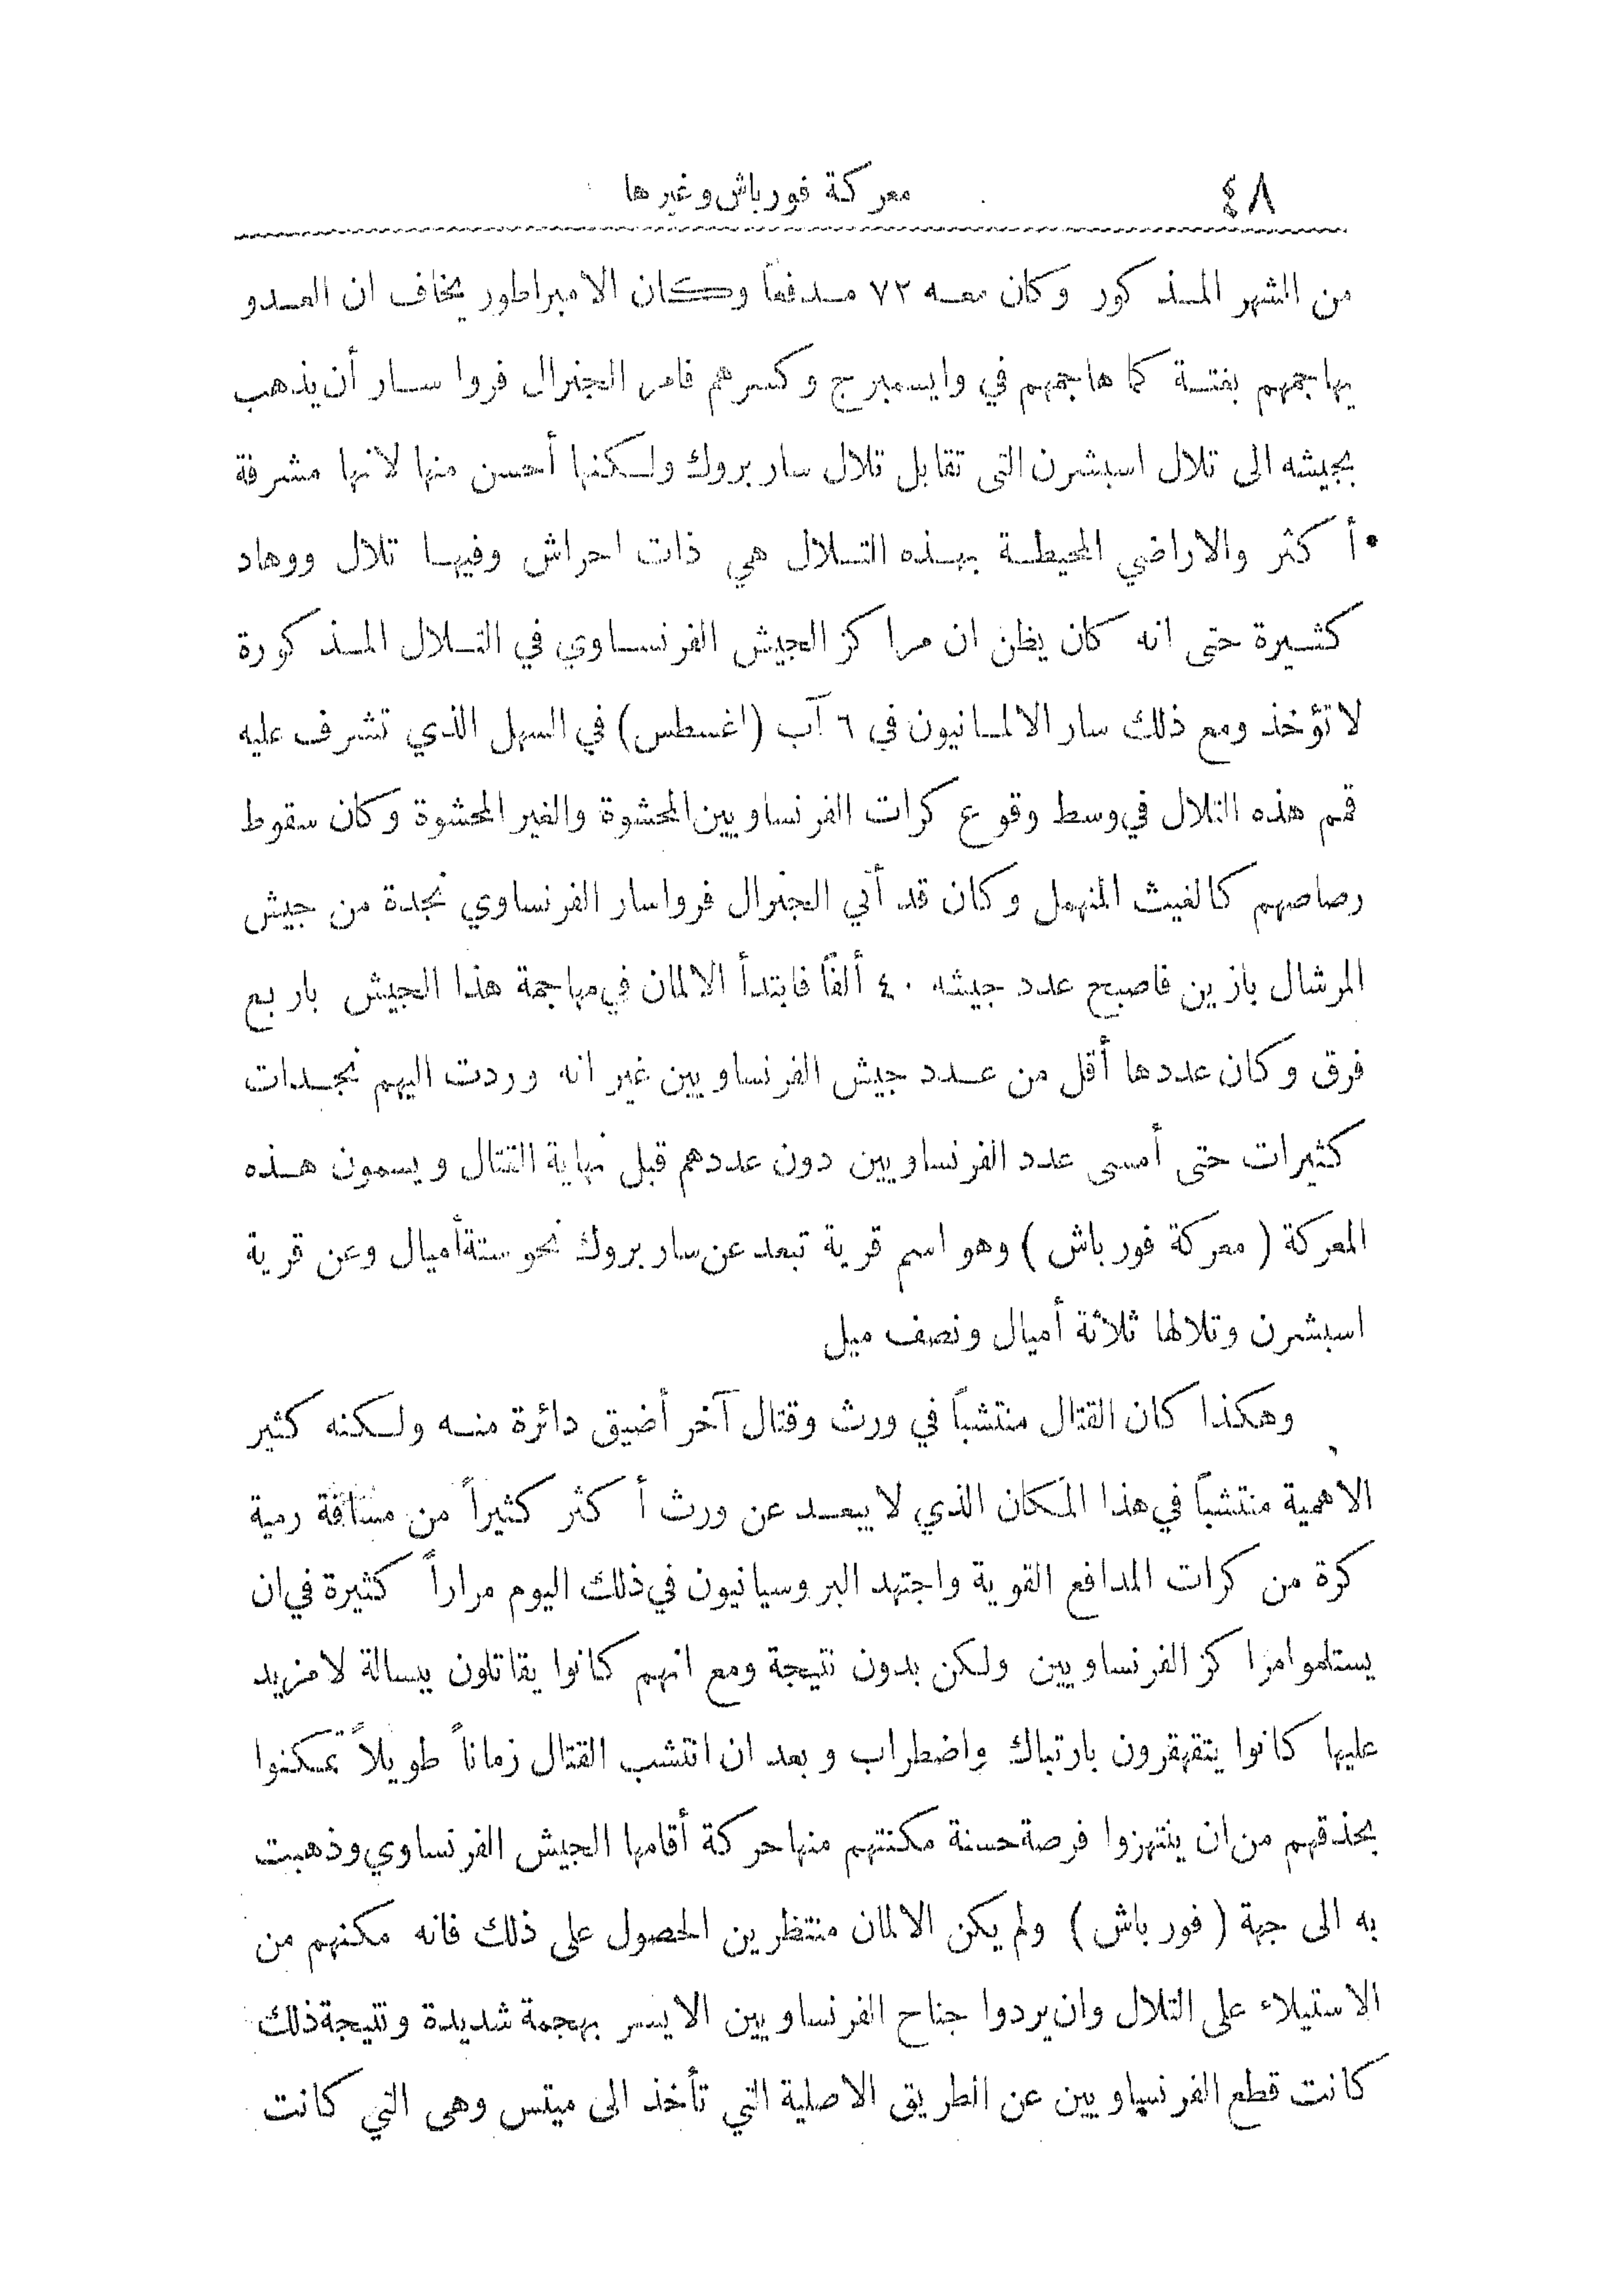 ٤٨ معركة فورباش وغيرها
من الشهر المذكور وكان معه ٧٢ مدفعاً وكان الامبراطور يخاف ان العدو
يهاجمهم بغتة كما هاجمهم في وايسمبرج وكسرهم فامر الجنرال فروا سار أن يذهب
بجيشه الى تلال اسبشرن التى تقابل تلال ساربروك ولكنها أحسن منها لانها مشرفة
أكثر والاراضي المحيطة بهذه التلال هي ذات احراش وفيها تلال ووهاد
كثيرة حتى انه كان يظن ان مراكز الجيش الفرنساوي في التلال المذكورة
لا تؤخذ ومع ذلك سار الالمانيون في ٦ آب (اغسطس) في السهل الذي تشرف عليه
قمم هذه التلال في وسط وقوع كرات الفرنساويين المحشوة والغير المحشوة وكان سقوط
رصاصهم كالغيث المنهمل وكان قد أتي الجنرال فرواسار الفرنساوي نجدة من جيش
المرشال بازين فاصبح عدد جيشه ٤٠ ألفاً فابتدأ الالمان في مهاجمة هذا الجيش باربع
فرق وكان عددها أقل من عدد جيش الفرنساويين غير انه وردت اليهم نجدات
كثيرات حتى أمسى عدد الفرنساويين دون عددهم قبل نهاية القتال ويسمون هذه
المعركة ( معركة فورباش ) وهو اسم قرية تبعد عن ساربروك نحو ستة أميال وعن قرية
اسبشرن وتلالها ثلاثة أميال ونصف ميل
وهكذا كان القتال منتشباً في ورث وقتال آخر أضيق دائرة منه ولكنه كثير
الاهمية منتشباً في هذا المكان الذي لا يبعد عن ورث أكثر كثيراً من مسافة رمية
كرة من كرات المدافع القوية واجتهد البروسيانيون في ذلك اليوم مراراً كثيرة في ان
يستلموا مراكز الفرنساويين ولكن بدون نتيجة ومع انهم كانوا يقاتلون ببسالة لا مزيد
عليها كانوا يتقهقرون بارتباك واضطراب وبعد ان انتشب القتال زماناً طويلاً تمكنوا
بحذقهم من ان ينتهزوا فرصة حسنة مكنتهم منها حركة أقامها الجيش الفرنساوي وذهبت
به الى جهة ( فورباش ) ولم يكن الالمان منتظرين الحصول على ذلك فانه مكنهم من
الاستيلاء على التلال وان يردوا جناح الفرنساويين الايسر بهجمة شديدة ونتيجة ذلك
كانت قطع الفرنساويين عن الطريق الاصلية التي تأخذ الى ميتس وهى التي كانت